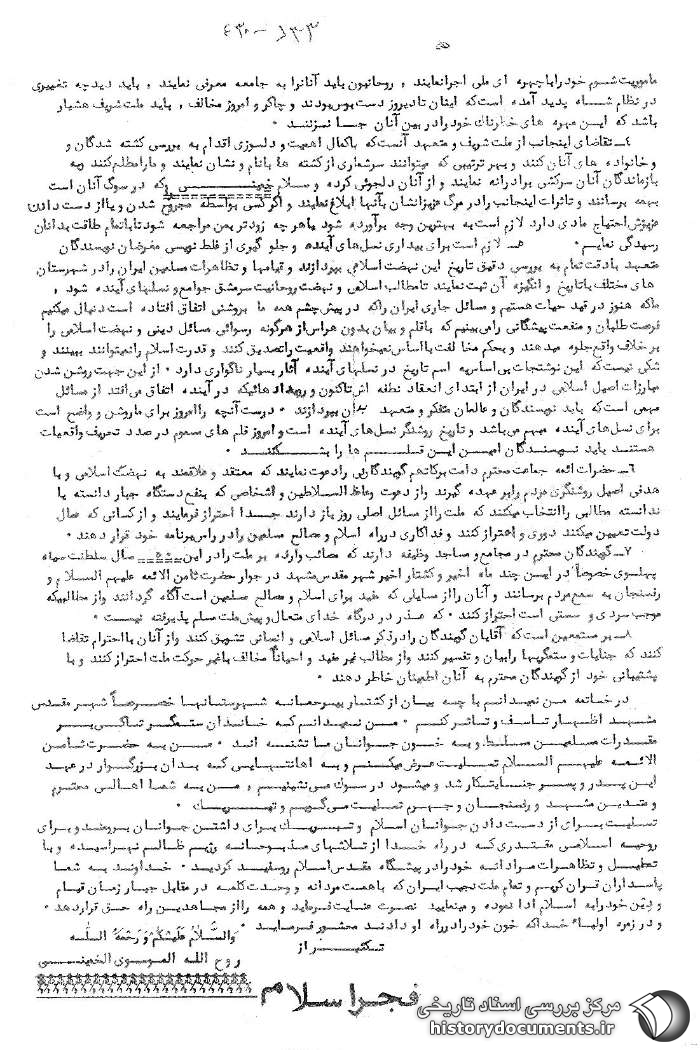 ماموریت شوم خود را با چهره ای ملی اجرا نمایند , روحانیون باید آنانرا به جامعه معرفی نمایند , باید دید چه تغییری
در نظام شاه پدید آمده است که اینان تا دیروز دست بوس بودند و چاکر و امروز مخالف , باید ملت شریف هشیار
باشد که این مهره های خطرناک خود را در بین آنان جا نزنند °
۴ـ تقاضای اینجانب از ملت شریف و متعهد آنست که باکمال اهمیت و دلسوزی اقدام به بررسی کشته شدگان و
و خانواده های آنان کنند و بهر ترتیبی که میتوانند سرشماری از کشته ها با نام و نشان نمایند و ما را مطلع کنند و به
بازماندگان آنان سرکشی برادرانه نمایند و از آنان دلجوئی کرده و سلام خمینی را که در سوگ آنان است
بهمه برسانند و تاثرات اینجانب را در مرگ عزیزانشان بآنها ابلاغ نمایند و اگر کسی بواسطه مجروح شدن و یا از دست دادن
عزیزش احتیاج مادی دارد لازم است به بهترین وجه برآورده شود یا هر چه زودتر بمن مراجعه شود تا با تمام طاقت بدانان
رسیدگی نمایم ° ۵ـ لازم است برای بیداری نسل‌های آینده و جلوگیری از غلط نویسی مغرضان نویسندگان
متعهد با دقت تمام به بررسی دقیق تاریخ این نهضت اسلامی بپردازند و قیامها و تظاهرات مسلمین ایران را در شهرستان
های مختلف با تاریخ و انگیزه آن ثبت نمایند تا مطالب اسلامی و نهضت روحانیت سرمشق جوامع و نسلهای آینده شود ,
ماکه هنوز در قید حیات هستیم و مسائل جاری ایران را که در پیش چشم همه ما بروشنی اتفاق افتاده است دنبال میکنیم
فرصت طلبان و منفعت پیشگانی را می‌بینیم که با قلم و بیان بدون هراس از هرگونه رسوائی مسائل دینی و نهضت اسلامی را
بر خلاف واقع جلوه میدهند و بحکم مخالفت با اساس نمیخواهند واقعیت را تصدیق کنند و قدرت اسلام را نمیتوانند ببینند و
شکی نیست که این نوشتجات بی اساس به اسم تاریخ در نسلهای آینده آثار بسیار ناگواری دارد ° از این جهت روشن شدن
مبارزات اصیل اسلامی در ایران از ابتدای انعقاد نطفه اش تاکنون و رویدادهائیکه در آینده اتفاق می‌افتد از مسائل
مهمی است که باید نویسندگان و عالمان متفکر و متعهد بدان بپردازند ° درست آنچه را امروز برای ما روشن و واضح است
برای نسل‌های آینده مبهم می‌باشد و تاریخ روشنگر نسل‌های آینده است و امروز قلم های مسموم در صدد تحریف واقعیات
هستند باید نویسندگان امین این قلم ها را بشکنند °
۶ـ حضرات ائمه جماعت محترم دامت برکاتهم گویندگانی را دعوت نمایند که معتقد و علاقمند به نهضت اسلامی و با
هدفی اصیل روشنگری مردم را بر عهده گیرند و از دعوت وعاظ السلاطین و اشخاصی که بنفع دستگاه جبار دانسته یا
ندانسته مطالبی را انتخاب میکنند که ملت را از مسائل اصلی روز باز دارند جداً احتراز فرمایند و از کسانی که عمال
دولت تعیین میکنند دوری و احتراز کنند و فداکاری در راه اسلام و مصالح مسلمین را در راس برنامه خود قرار دهند °
۷ـ گویندگان محترم در مجامع و مساجد وظیفه دارند که مصائب وارده بر ملت را در این سال سلطنت سیاه
پهلوی خصوصاً در این چند ماه اخیر و کشتار اخیر شهر مقدس مشهد در جوار حضرت ثامن الائمه علیهم السلام و
رفسنجان به سمع مردم برسانند و آنان را از مسایلی که مفید برای اسلام و مصالح مسلمین است آگاه گردانند و از مطالبیکه
موجب سردی و سستی است احتراز کنند ° که عذر در درگاه خدای متعال و پیش ملت مسلم پذیرفته نیست °
۸ـ بر مستمعین است که آقایان گویندگان را در ذکر مسائل اسلامی و انسانی تشویق کنند و از آنان با احترام تقاضا
کنند که جنایات و ستمگریها را بیان و تفسیر کنند و از مطالب غیر مفید و احیاناً مخالف با غیر حرکت ملت احتراز کنند و با
پشتیبانی خود از گویندگان محترم به آنان اطمینان خاطر دهند °
در خاتمه من نمیدانم با چه بیان از کشتار بیرحمانه شهرستانها خصوصاً شهر مقدس
مشهد اظهار تاسف و تاثر کنم ° من نمیدانم که خاندان ستمگر تا کی بر
مقدرات مسلمین مسلط و به خون جوانان ما تشنه اند ° من به حضرت ثامن
الائمه علیهم السلام تسلیت عرض میکنم و به اهانتهایی که بدان بزرگوار در عهد
این پدر و پسر جنایتکار شد و میشود در سوک می‌نشینم , من به شما اهالی محترم
و متدین مشهد و رفسنجان و جهرم تسلیت می‌گویم و تبریک °
تسلیت برای از دست دادن جوانان اسلام و تبریک برای داشتن جوانان برومند و برای
روحیه اسلامی مقتدری که در راه خدا از تلاشهای مذبوحانه رژیم ظالم نهراسیده و با
تعطیل و تظاهرات مردانه خود را در پیشگاه مقدس اسلام روسفید کردید ° خداوند به شما
پاسداران قرآن کریم و تمام ملت نجیب ایران که با همت مردانه و وحدت کلمه در مقابل جبار زمان قیام
و دین خود را به اسلام ادا نموده و مینمایند نصرت عنایت فرماید و همه را از مجاهدین راه حق قرار دهد °
و در زمره اولیاء خدا که خون خود را در راه او دادند محشور فرماید °
والسلام علیکم و رحمة الله
روح الله الموسوی الخمینی
تکثیر از
فجر اسلام
مرکز بررسی اسناد تاریخی
historydocuments.ir